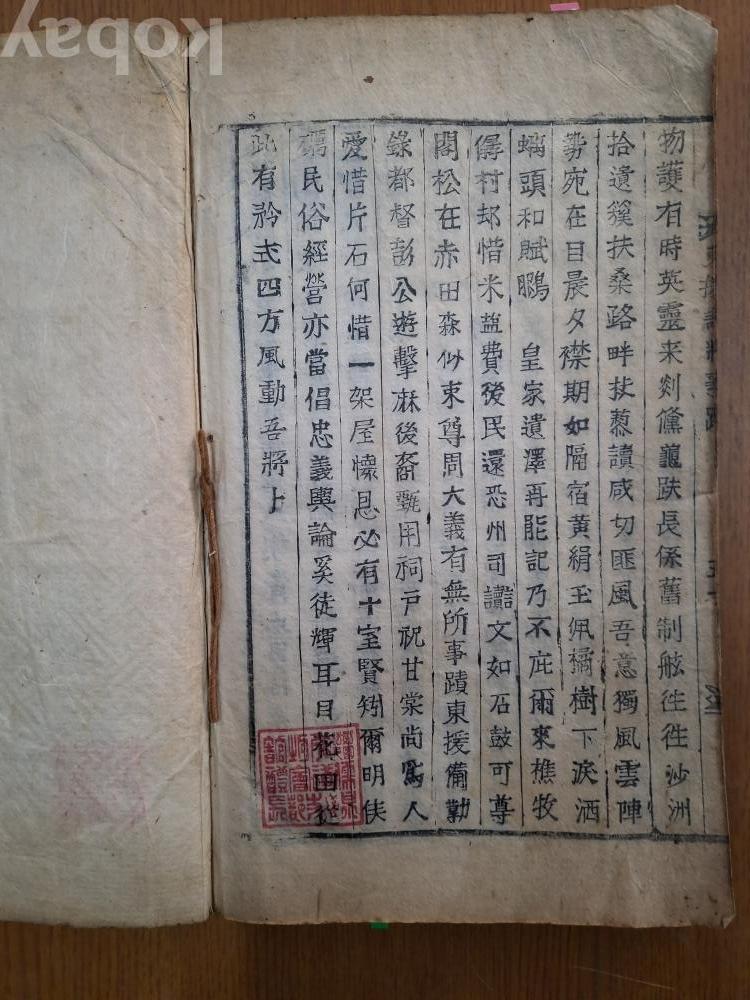 物護有時英靈来剡儵龜趺長係舊制舷往往沙洲
拾遺簇扶桑路畔扙藜讀咸切匪風吾意獨風雲陣
势宛在目晨夕襟期如隔宿黄絹玉佩橘樹下淚洒
螭頭和賦鵩 皇家遺澤再能記乃不庇爾來樵牧
得村邨惜米盐費後民還恐州司讟文如石鼓可尊
閣松在赤田森似束尊周大義有無所事蹟東援備勤
錄都督彭公遊擊麻後裔甄用祠户祝甘棠尚為人
愛惜片石何惜一架屋懷恩必有十室賢矧爾明侠
民俗經營亦當倡忠義輿論奚徒輝耳目花田従
此有矜式四方風動吾將卜
kobay